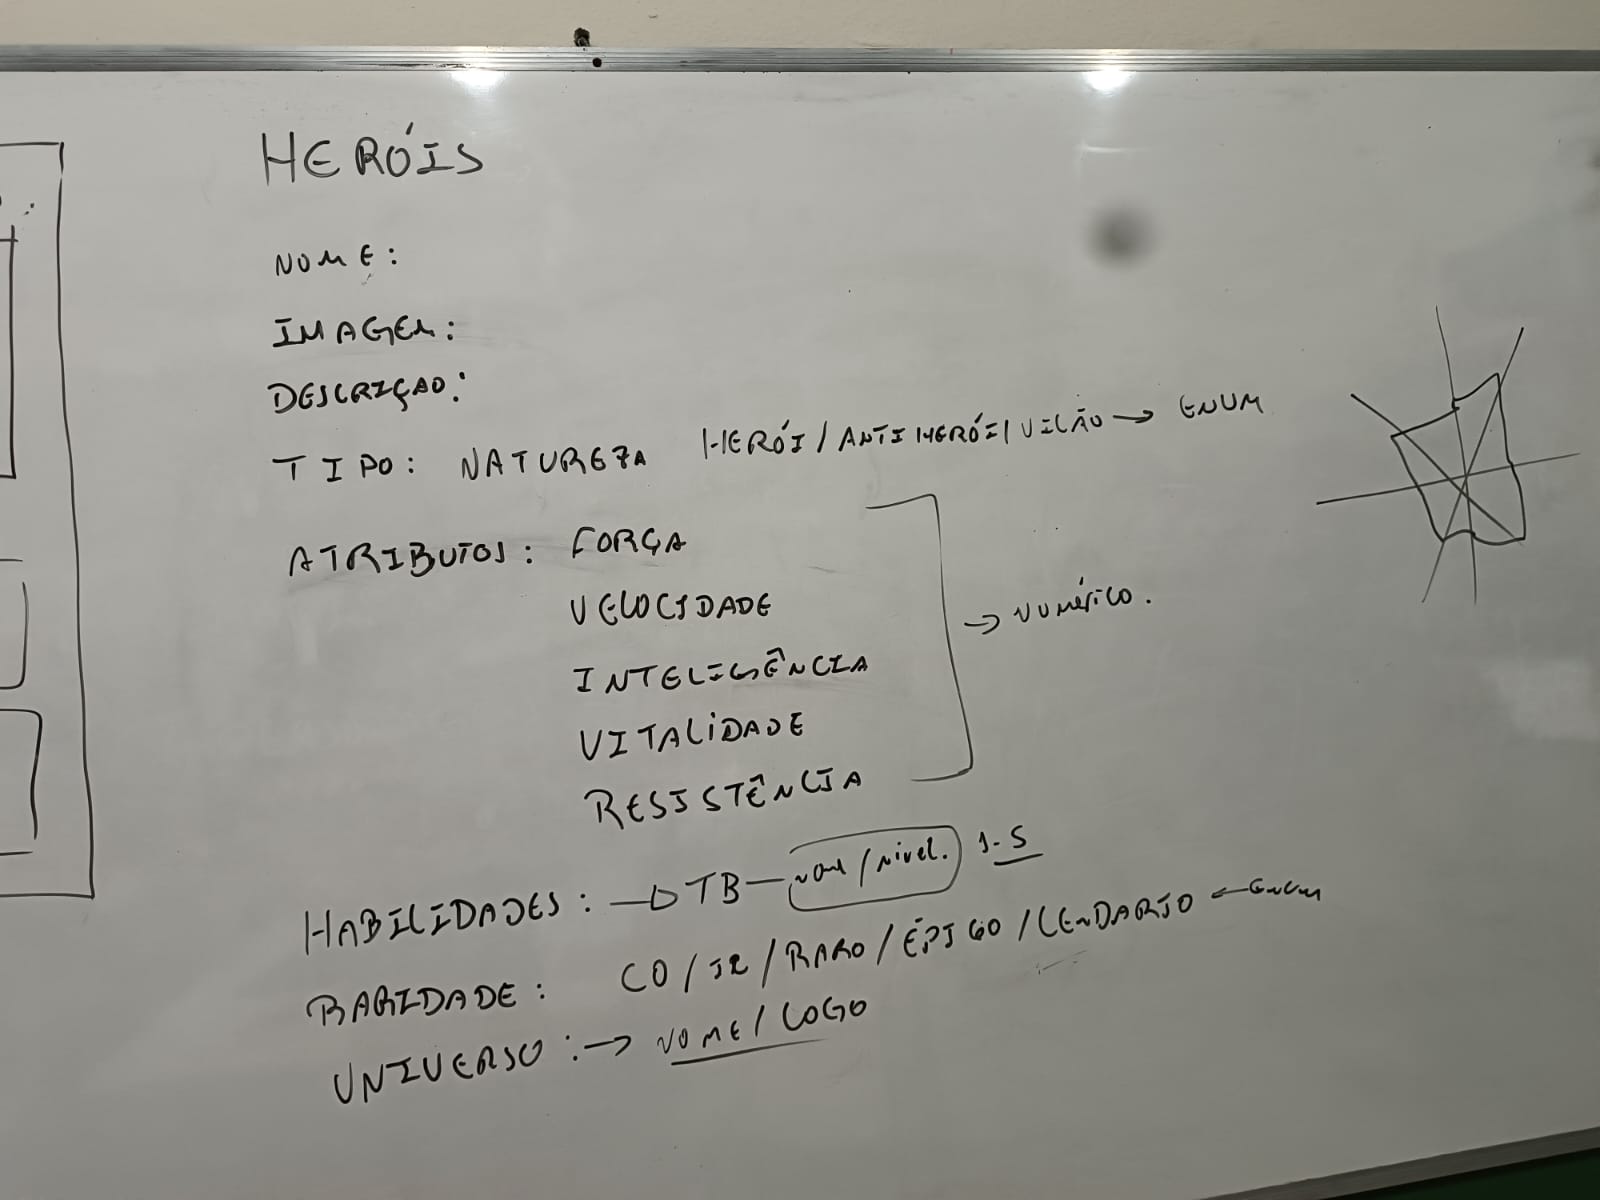 HERÓIS
NOME:
IMAGEM:
DESCRIÇAO:
TIPO: NATUREZA HERÓI/ANTI HERÓI/VILÃO → ENUM
ATRIBUTOS: FORÇA
VELOCIDADE
INTELIGÊNCIA
VITALIDADE
RESISTÊNCIA
→ NUMÉRICO.
HABILIDADES: → TB — nome/nivel. 1-5
RARIDADE: CO/IR/RARO/ÉPICO/LENDARIO ← ENUM
UNIVERSO: → NOME/LOGO